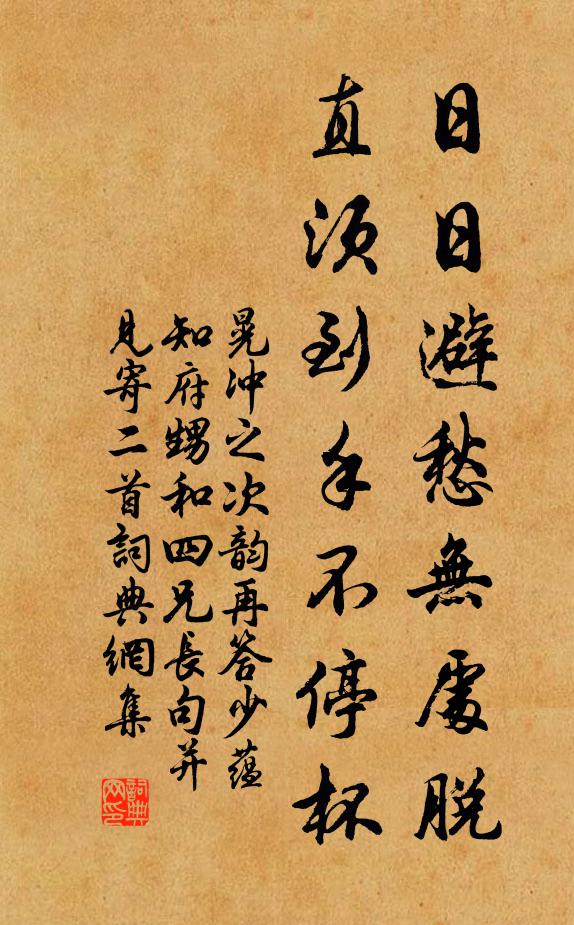 日日避愁無處脱
直須到手不停杯
晁冲之次韵再答少蕴
知府甥和四兄長句并
見寄二首詞典網集
詞典網印